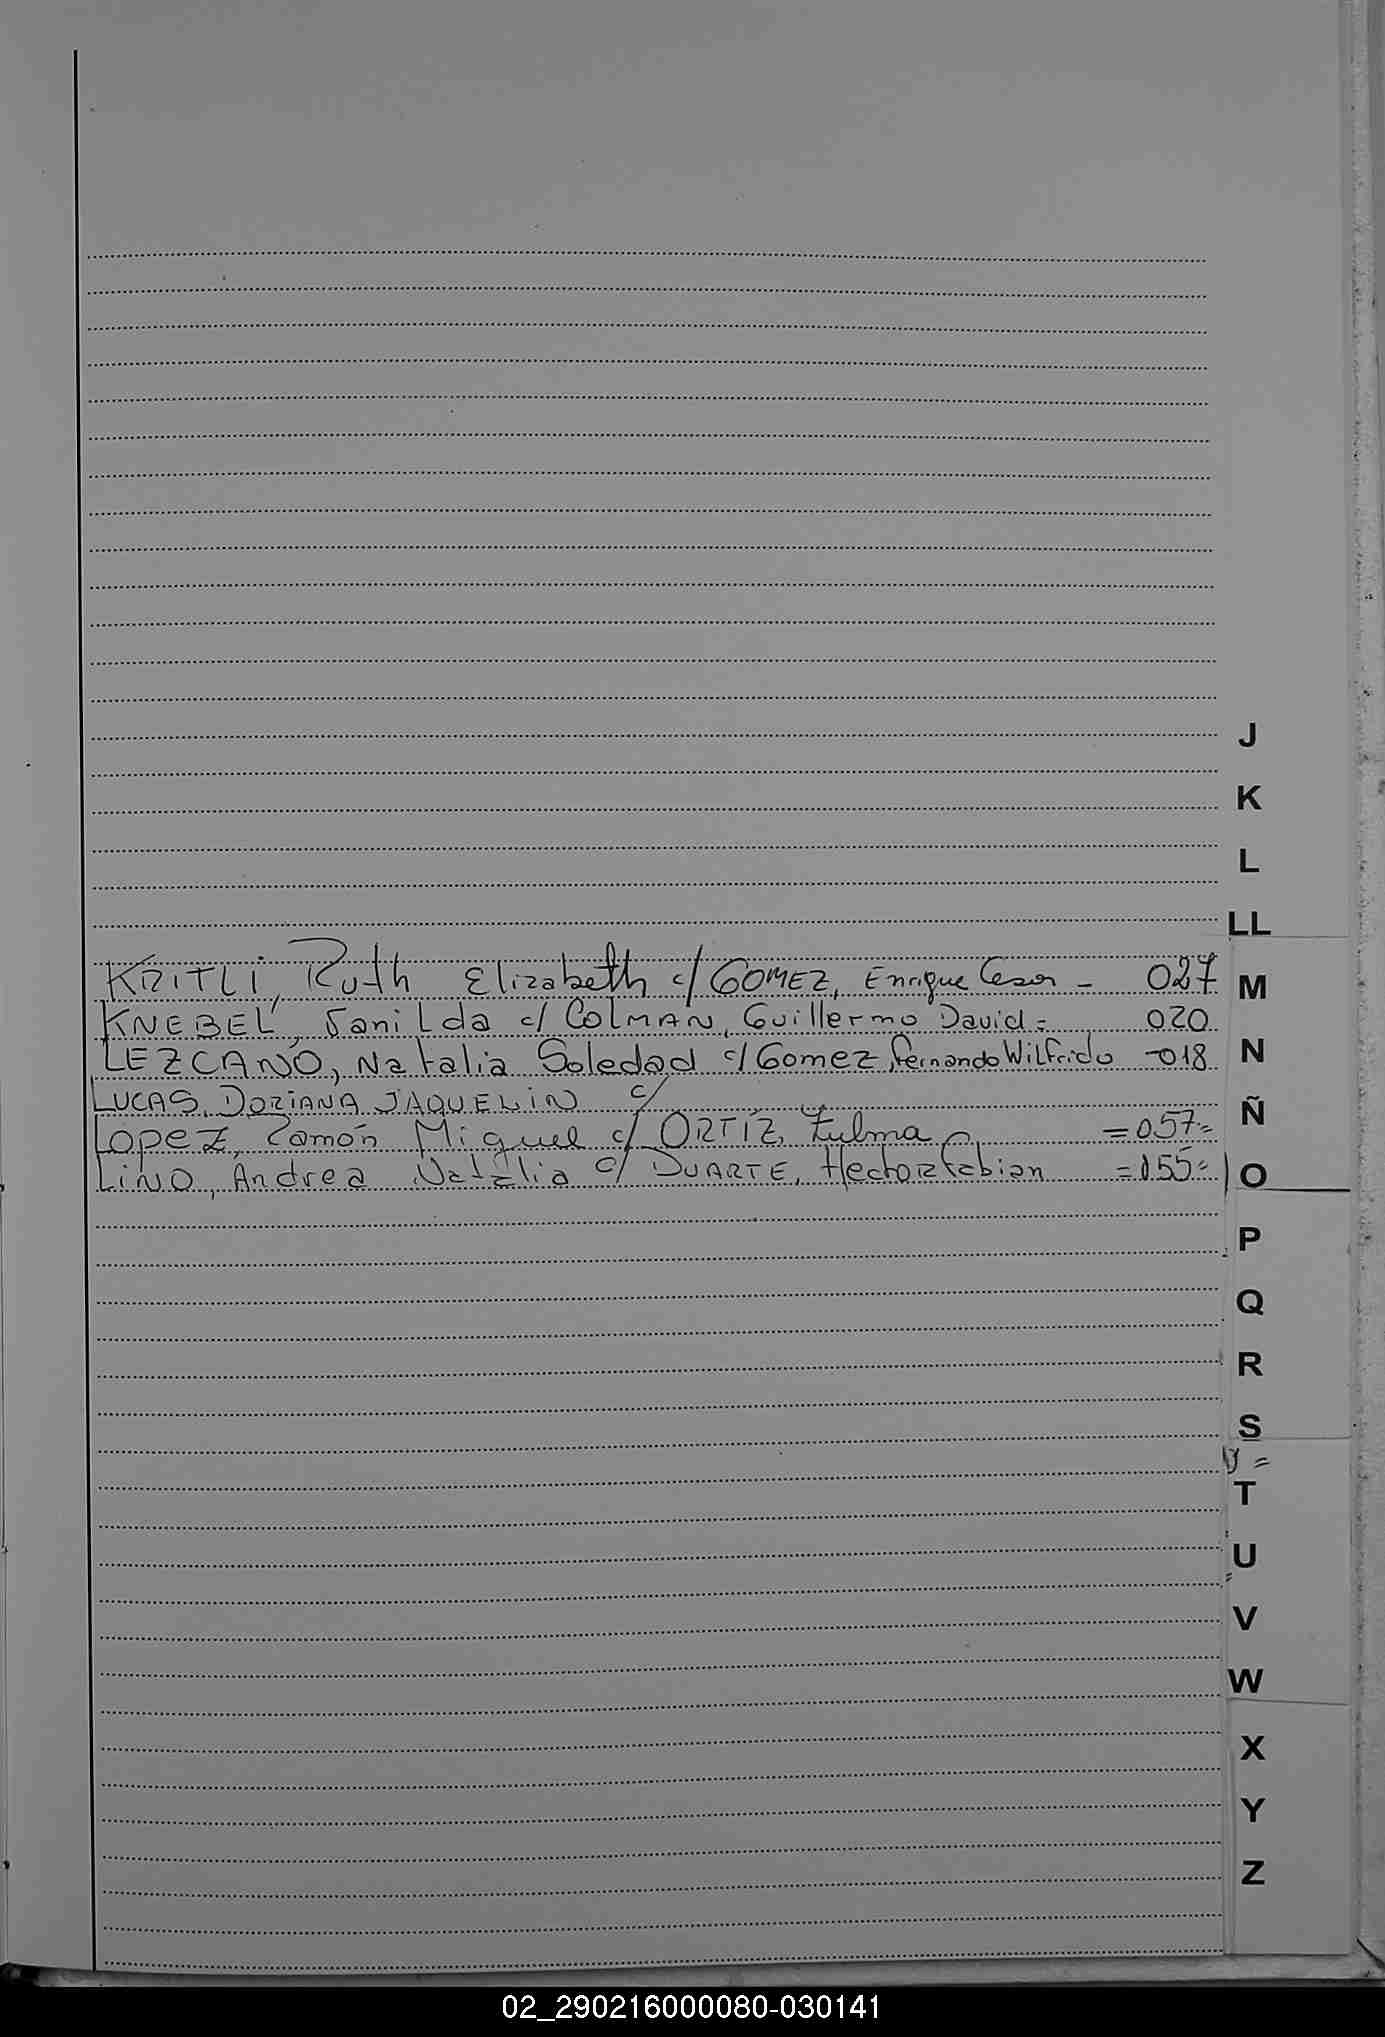 J
K
L
LL
KRITLI, Ruth Elizabeth c/ GOMEZ, Enrique Cesar - 027
M
KNEBEL, Tanilda c/ COLMAN, Guillermo David = 020
LEZCANO, Natalia Soledad c/ Gomez, Fernando Wilfrido -018
N
LUCAS, DORIANA JAQUELIN c/
Ñ
LOPEZ, Ramón Miguel c/ ORTÍZ, Zulma =057=
LINO, Andrea Natalia c/ DUARTE, Hector Fabian =055=
O
P
Q
R
S
T
U
V
W
X
Y
Z
02_290216000080-030141